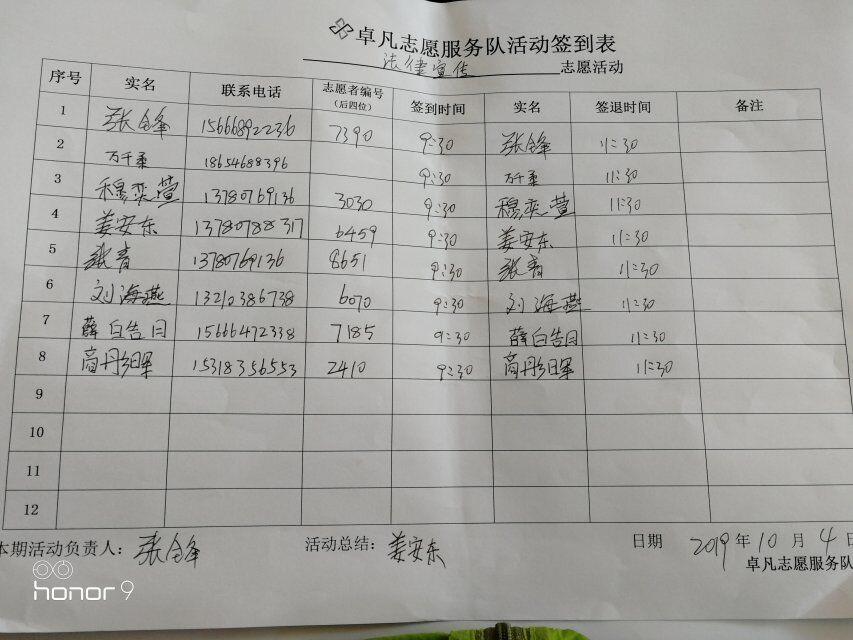 卓凡志愿服务队活动签到表
法律宣传 志愿活动
序号 实名 联系电话 志愿者编号（后四位） 签到时间 实名 签退时间 备注
1 张锋 15666892236 7390 9:30 张锋 11:30
2 万千柔 18654688396 9:30 万千柔 11:30
3 穆奕萱 13780769136 3030 9:30 穆奕萱 11:30
4 姜安东 13780788317 6459 9:30 姜安东 11:30
5 张青 13780769136 8651 9:30 张青 11:30
6 刘海燕 13210386738 6070 9:30 刘海燕 11:30
7 薛白告日 15666472338 7185 9:30 薛白告日 11:30
8 高丹 15318356553 2410 9:30 高丹 11:30
9
10
11
12
本期活动负责人：张锋 活动总结：姜安东 日期 2019年10月4日
卓凡志愿服务队
honor 9